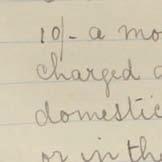 10/- a mo
charged a
domestic
or in th